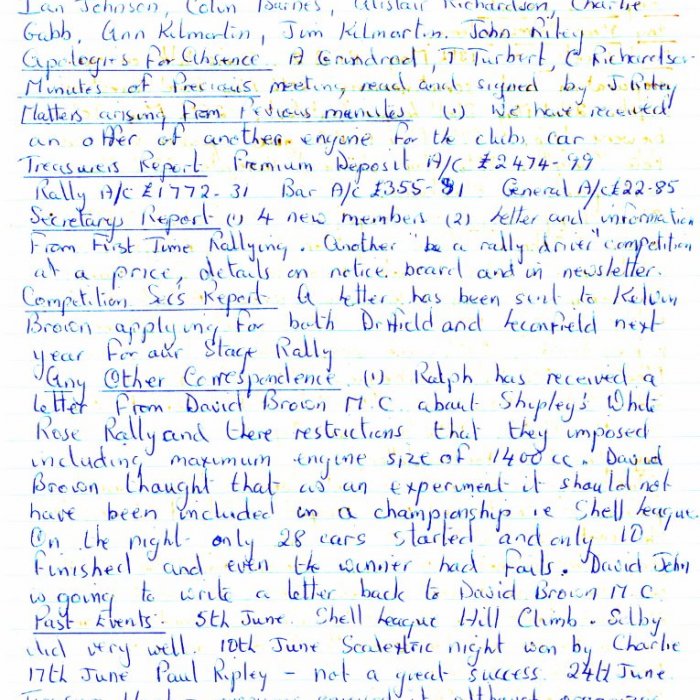 Ian Johnson, Colin Barnes, Alistair Richardson, Charlie
Gubb, Ann Kilmartin, Jim Kilmartin. John Riley
Apologies for Absence. A Grindrod, T Turbert, C Richardson
Minutes of Previous meeting read and signed by J Riley
Matters arising from Previous minutes (1) We have received
an offer of another engine for the clubs car
Treasurers Report Premium Deposit A/C £2474-99
Rally A/C £1772-31 Bar A/C £355-91 General A/C £22-85
Secretarys Report (1) 4 new members (2) Letter and information
From First Time Rallying. Another "be a rally driver" competition
at a price, details on notice board and in newsletter.
Competition Sec's Report A letter has been sent to Kelvin
Brown applying for both Driffield and Leconfield next
year for our Stage Rally
Any Other Correspondence (1) Ralph has received a
letter from David Brown M.C. about Shipley's White
Rose Rally and there restrictions that they imposed
including maximum engine size of 1400cc. David
Brown thought that as an experiment it should not
have been included in a championship ie Shell League.
On the night only 28 cars started and only 10
finished and even the winner had fails. David John
is going to write a letter back to David Brown M.C.
Past Events. 5th June. Shell League Hill Climb. Selby
did very well. 10th June Scalextric night won by Charlie
17th June Paul Ripley - not a great success. 24th June